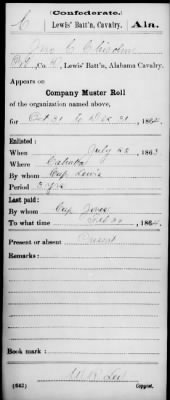 (Confederate.)
C | Lewis' Batt'n, Cavalry. | Ala.
Jno C Chisolm
Co. , Lewis' Batt'n, Alabama Cavalry.
Appears on
Company Muster Roll
of the organization named above,
for Oct 31 to Dec 31, 1864
Enlisted:
When July 25, 1863
Where Cahaba
By whom Cap Lewis
Period 3 yrs
Last paid:
By whom Cap Jones
To what time , 1864.
Present or absent Present
Remarks:
Book mark:
(642) Copyist.